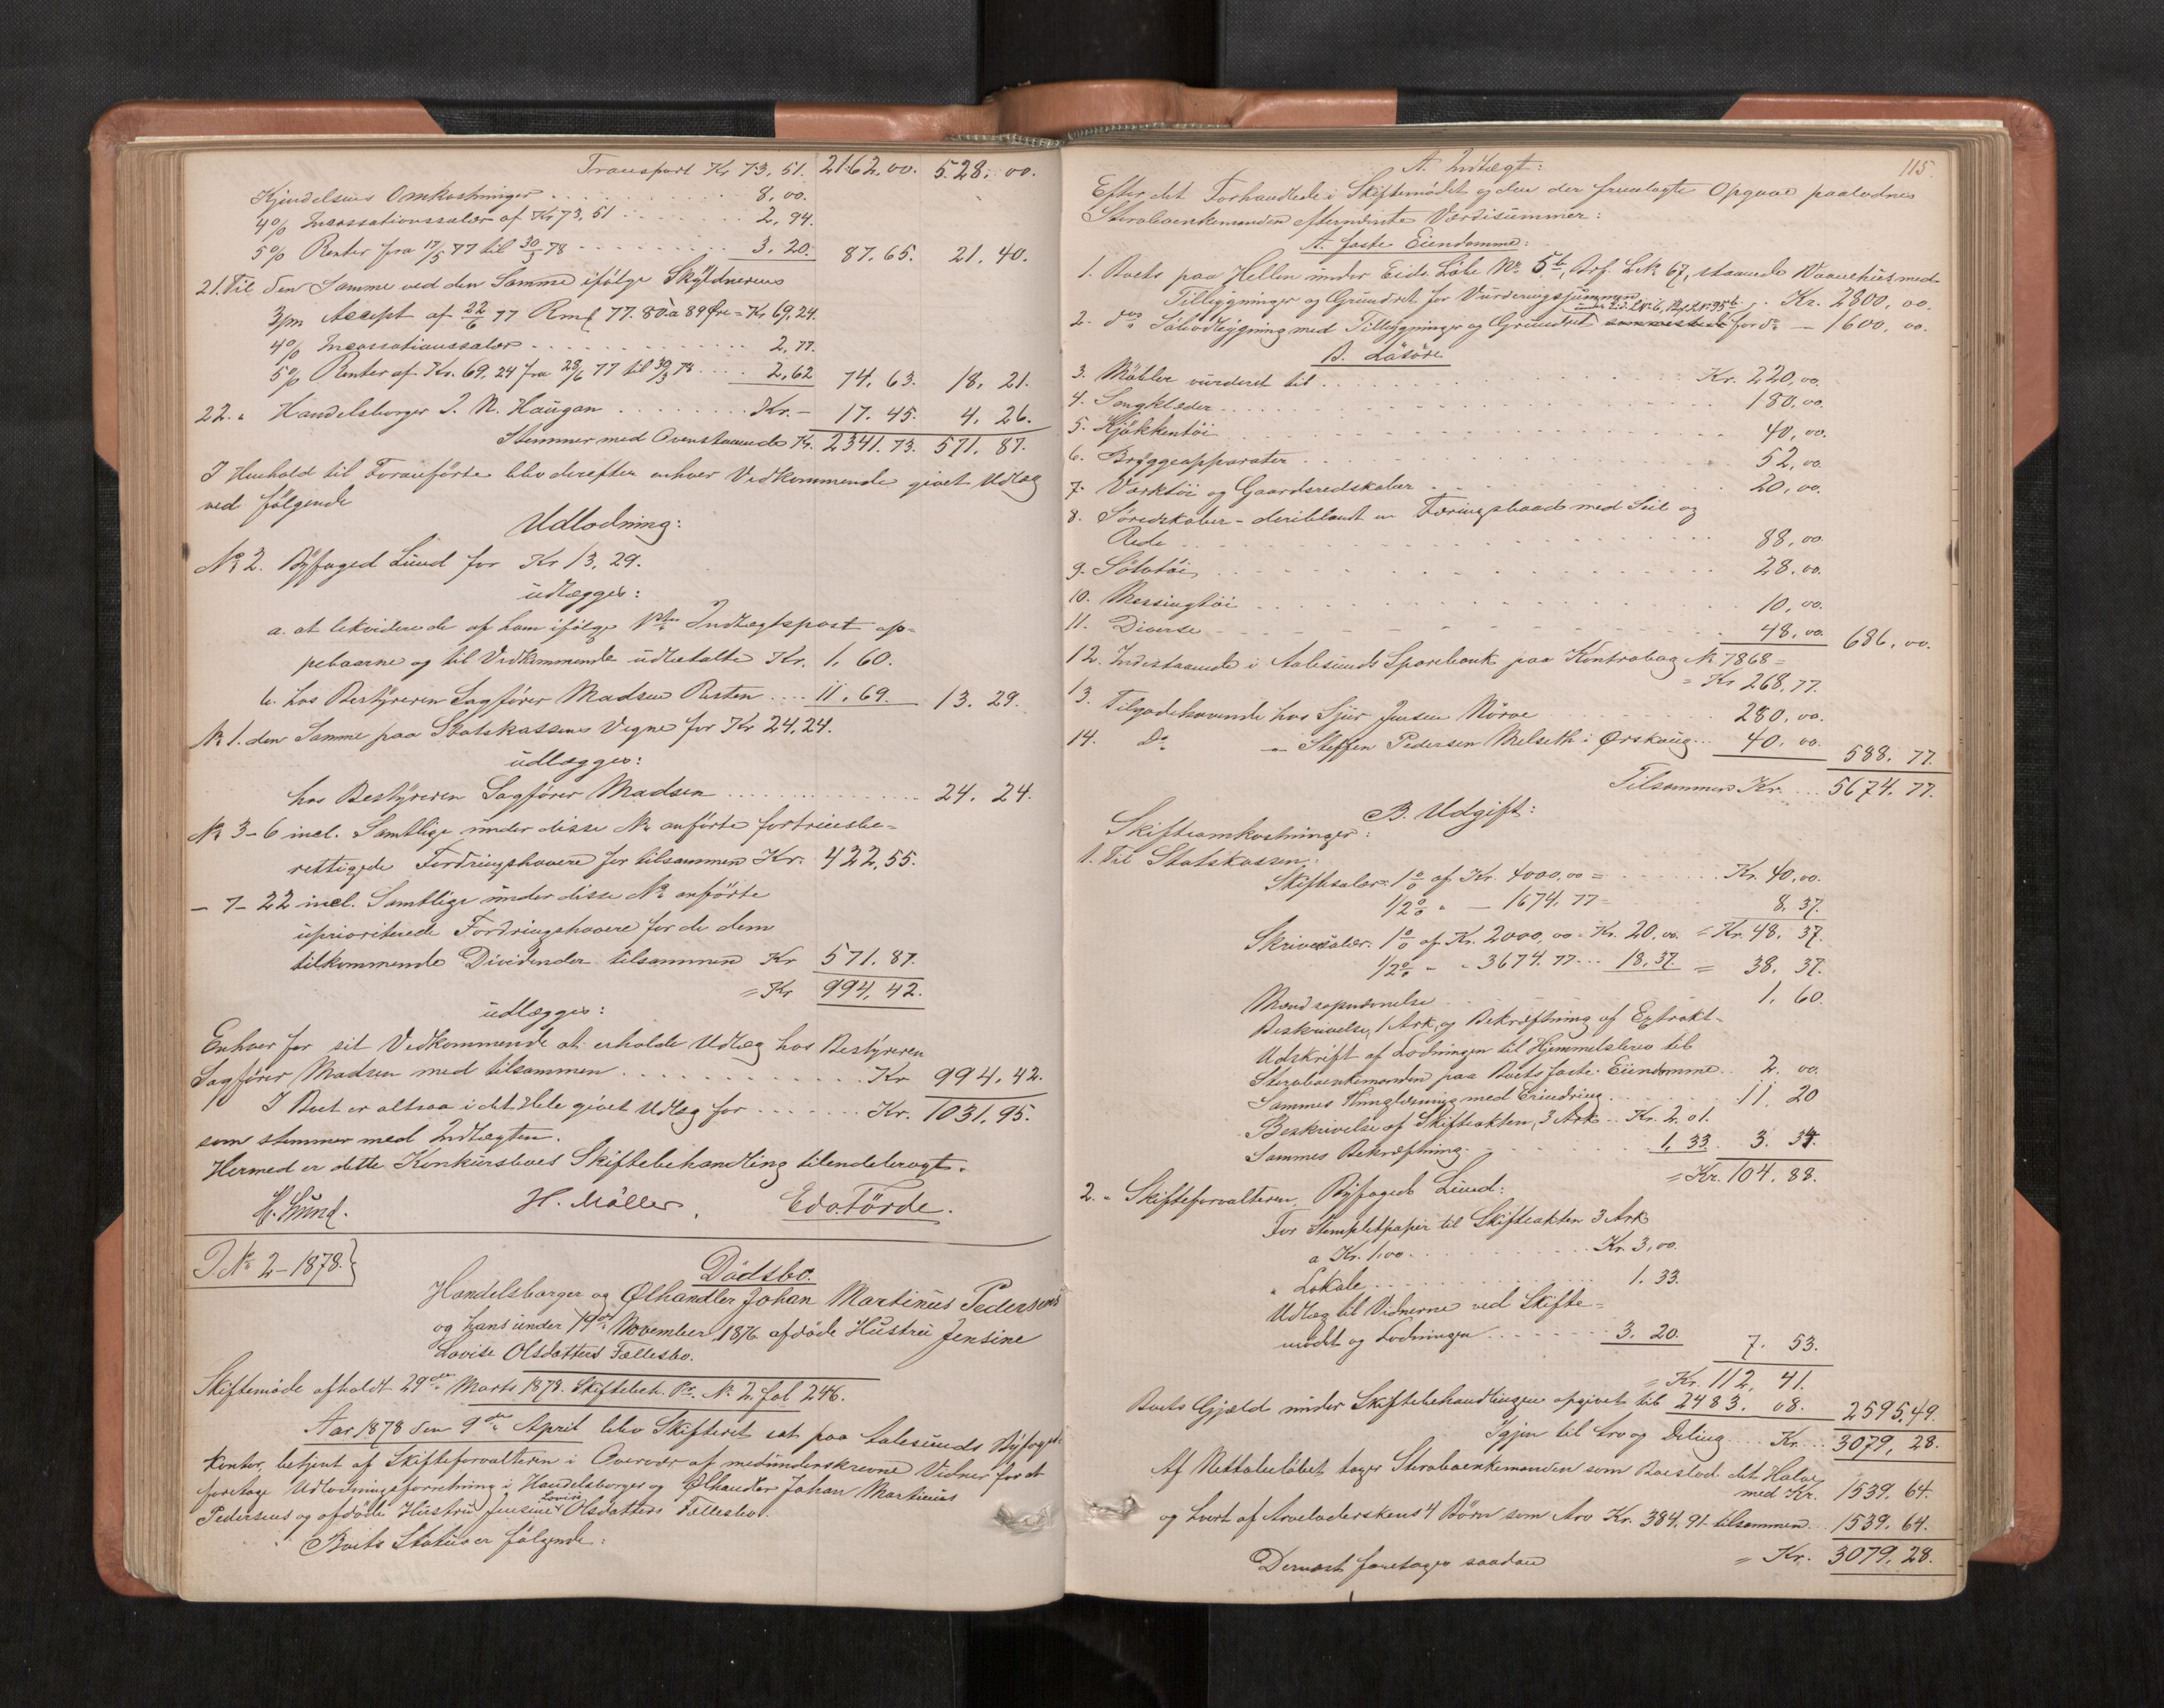 Transport Kr 73,51. 2162.00. 528.00.
Kjendelsens Omkostninger . . . 8,00.
4% Incassationssalær af Kr 73,51 . . . 2,94.
5% Renter fra 17/5 77 til 30/3 78 . . . 3,20. 87,65. 21,40.
21. Til den Samme ved den Samme ifølge Skyldnerens
3/m Accept af 22/6 77 Rmk 77.80 à 89 Øre = Kr 69,24.
4% Incassationssalær . . . 2,77.
5% Renter af Kr. 69,24 fra 28/6 77 til 30/3 78 . . . 2,62 74,63. 18,21.
22. " Handelsborger J. N. Haugan . . . Kr. - 17.45. 4,26.
Stemmer med Ovenstaaende Kr. 2341.73. 571.87.
I Henhold til Foranførte blev derefter enhver Vedkommende givet Udlæg
ved følgende
Udlodning:
No 2. Byfoged Lund for Kr 13,29.
udlægges:
a. at likvidere de af ham ifølge 1ste Indtægtspost op-
pebaarne og til Vedkommende udbetalte Kr. 1,60.
b. hos Bestyreren Sagfører Madsen Resten . . . 11,69. 13.29.
No 1. den Samme paa Statskassens Vegne for Kr 24,24.
udlægges:
hos Bestyreren Sagfører Madsen . . . 24,24.
No 3-6 incl. Samtlige under disse No anførte fortrinsbe-
rettigede Fordringshavere for tilsammen Kr. 422,55.
- 7-22 incl. Samtlige under disse No anførte
uprioriterede Fordringshavere for de dem
tilkommende Dividender tilsammen Kr 571.87.
= Kr 994,42.
udlægges:
Enhver for sit Vedkommende at erholde Udlæg hos Bestyreren
Sagfører Madsen med tilsammen . . . Kr 994,42.
I Boet er altsaa i det Hele givet Udlæg for . . . Kr. 1031,95.
som stemmer med Indtægten.
Hermed er dette Konkursboes Skiftebehandling tilendebragt.
H. Lund. H. Möller. Edv. Förde.
J. No 2-1878.
Dödsbo.
Handelsborger og Ølhandler Johan Martinus Pedersens
og hans under 14de November 1876 afdøde Hustru Jensine
Lovise Olsdatters Fællesbo.
Skiftemøde afholdt 29de Marts 1878. Skiftebeh. Pr. No 2. fol 246.
Aar 1878 den 9de April blev Skifteret sat paa Aalesunds Byfoged-
kontor, betjent af Skifteforvalteren i Overvær af medunderskrevne Vidner for at
foretage Udlodningsforretning i Handelsborger og Ølhandler Johan Martinus
Pedersens og afdøde Hustru Jensine Lovise Olsdatters Fællesbo.
Boets Status er følgende:
115.
A. Indtægt:
Efter det Forhandlede i Skiftemødet og den der fremlagte Opgave paalødnes
Stervboenkemanden efternævnte Værdisummer:
A. faste Eiendomme:
1. Boets paa Hellen under Eids Løbe No 5b, Brf. Lk 67, staaende Vaanehus med
Tilbygninger og Grundret for Vurderingssummen . . Kr. 2800,00.
2. dets Søbodbygning med Tilbygninger og Grundret under Eids L. No 6, Brf. L. No 95b sammesteds for do - 1600,00.
B. Løsøre
3. Møbler vurderet til . . . Kr. 220,00.
4. Sengklæder . . . 180,00.
5. Kjøkkentøi . . . 40,00.
6. Bryggeapparater . . . 52,00.
7. Værktøi og Gaardsredskaber . . . 20,00.
8. Søredskaber - deriblandt en Færingsbaad med Seil og
Rede . . . 88,00.
9. Sølvtøi . . . 28,00.
10. Messingtøi . . . 10,00.
11. Diverse . . . 48,00. 686,00.
12. Indestaaende i Aalesunds Sparebank paa Kontrabog No 7868 =
= Kr 268,77.
13. Tilgodehavende hos Sjur Jensen Nörve . . . 280,00.
14. Do " Steffen Pedersen Melseth i Ørskoug . . 40,00. 588.77.
Tilsammen Kr. . . 5674.77.
B. Udgift:
Skifteomkostninger:
1. Til Statskassen:
Skiftesalær: 1% af Kr. 4000,00 = . . . Kr. 40,00.
1/2% " - 1674.77 = 8,37.
= Kr. 48,37.
Skriversalær: 1% af Kr. 2000,00 = Kr. 20,00.
1/2% " " 3674.77 . . 18,37. = 38,37.
Mændsopnævnelse . . . 1,60.
Beskrivelse, 1 Ark, og Bekræftning af Extrakt-
Udskrift af Lodningen til Hjemmelsbrev til
Stervboenkemanden paa Boets faste Eiendomme . . 2.00.
Sammes Thinglæsning med Erindring . . . 11,20
Beskrivelse af Skifteakten, 3 Ark . . Kr. 2,01.
Sammes Bekræftning . . . 1,33 3,34.
= Kr. 104,88.
2. " Skifteforvalteren, Byfoged Lund:
For Stempletpapir til Skifteakten 3 Ark
a Kr. 1.00 . . . Kr. 3,00.
" Lokale . . . 1.33.
Udlæg til Vidnerne ved Skifte-
mødet og Lodningen . . . 3,20. 7,53.
= Kr. 112,41.
Boets Gjæld under Skiftebehandlingen opgivet til 2483,08. 2595,49.
Igjen til Arv og Deling . . . Kr. . . 3079,28.
Af Nettobeløbet tager Stervboenkemanden som Boeslod det Halve
med Kr. 1539,64.
og hvert af Arveladerskens 4 Børn som Arv Kr. 384,91 tilsammen . . 1539,64.
= Kr. 3079,28.
Dernæst foretages saadan